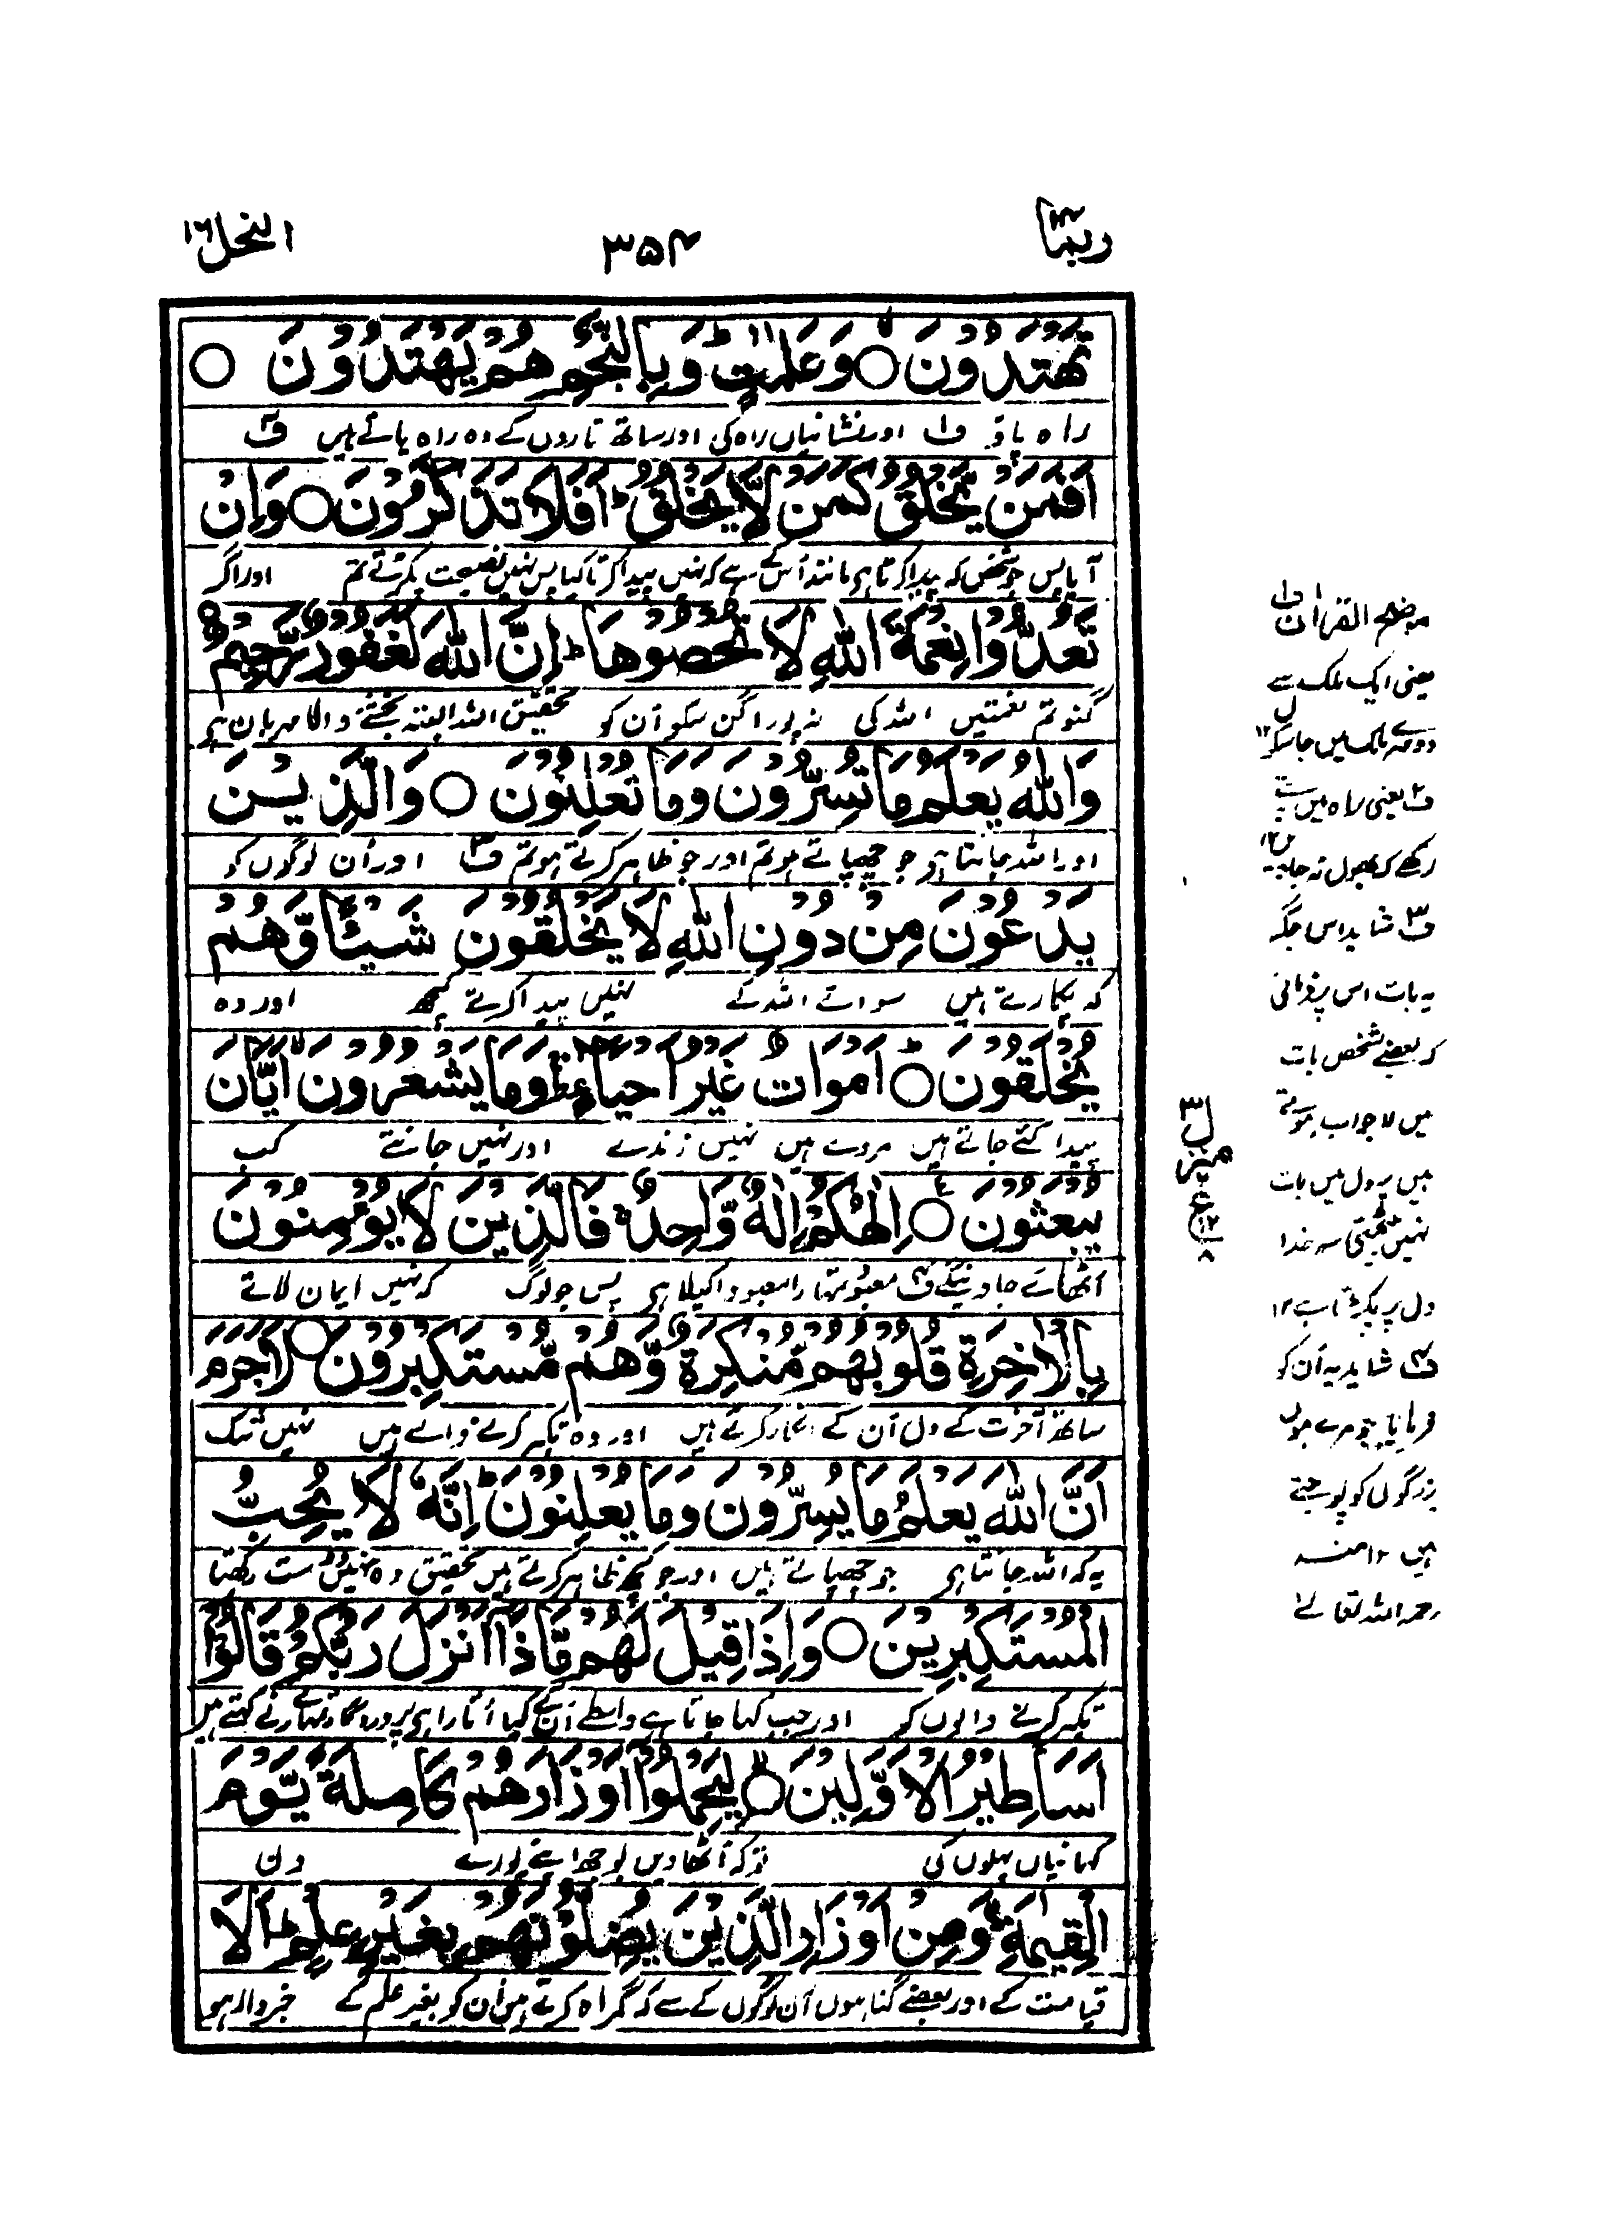 ربما ١٤
٣٥٤
النحل ١٦
تَهْتَدُوْنَ ○ وَعَلٰمٰتٍ ؕ وَبِالنَّجْمِ هُمْ يَهْتَدُوْنَ ○
راہ پاؤ ف۱ اور نشانیاں راہ کی اور ساتھ تاروں کے وہ راہ پاتے ہیں ف۲
اَفَمَنْ يَّخْلُقُ كَمَنْ لَّا يَخْلُقُ ؕ اَفَلَا تَذَكَّرُوْنَ ○ وَاِنْ
آیا پس جو شخص کہ پیدا کرتا ہی مانند اُس کے ہے کہ نہیں پیدا کرتا کیا پس نہیں نصیحت پکڑتے تم اور اگر
تَعُدُّوْا نِعْمَةَ اللّٰهِ لَا تُحْصُوْهَا ؕ اِنَّ اللّٰهَ لَغَفُوْرٌ رَّحِيْمٌ ○
گنو تم نعمتیں اللہ کی نہ پورا گن سکو اُن کو تحقیق اللہ البتہ بخشنے والا مہربان ہی
وَاللّٰهُ يَعْلَمُ مَا تُسِرُّوْنَ وَمَا تُعْلِنُوْنَ ○ وَالَّذِيْنَ
اور اللہ جانتا ہی جو چھپاتے ہو تم اور جو ظاہر کرتے ہو تم ف۳ اور اُن لوگوں کو
يَدْعُوْنَ مِنْ دُوْنِ اللّٰهِ لَا يَخْلُقُوْنَ شَيْئًا وَّهُمْ
کہ پکارتے ہیں سوائے اللہ کے نہیں پیدا کرتے کچھ اور وہ
يُخْلَقُوْنَ ○ اَمْوَاتٌ غَيْرُ اَحْيَاءٍ ۚ وَمَا يَشْعُرُوْنَ اَيَّانَ
پیدا کئے جاتے ہیں مردے ہیں نہیں زندے اور نہیں جانتے کب
يُبْعَثُوْنَ ○ اِلٰهُكُمْ اِلٰهٌ وَّاحِدٌ ۚ فَالَّذِيْنَ لَا يُؤْمِنُوْنَ
اُٹھائے جاوینگے ف۴ معبود تمہارا معبود اکیلا ہی پس جو لوگ کہ نہیں ایمان لاتے
بِالْاٰخِرَةِ قُلُوْبُهُمْ مُّنْكِرَةٌ وَّهُمْ مُّسْتَكْبِرُوْنَ ○ لَاجَرَمَ
ساتھ آخرت کے دل اُن کے انکار کرتے ہیں اور وہ تکبر کرنے والے ہیں نہیں شک
اَنَّ اللّٰهَ يَعْلَمُ مَا يُسِرُّوْنَ وَمَا يُعْلِنُوْنَ ؕ اِنَّهٗ لَا يُحِبُّ
یہ کہ اللہ جانتا ہی جو چھپاتے ہیں اور جو کچھ ظاہر کرتے ہیں تحقیق وہ نہیں دوست رکھتا
الْمُسْتَكْبِرِيْنَ ○ وَاِذَا قِيْلَ لَهُمْ مَّاذَا اَنْزَلَ رَبُّكُمْ قَالُوْا
تکبر کرنے والوں کو اور جب کہا جاتا ہے واسطے اُن کے کیا اُتارا ہی پروردگار تمہارے نے کہتے ہیں
اَسَاطِيْرُ الْاَوَّلِيْنَ ○ لِيَحْمِلُوْا اَوْزَارَهُمْ كَامِلَةً يَّوْمَ
کہانیاں پہلوں کی تو کہ اُٹھاویں بوجھ اپنے پورے دن
الْقِيٰمَةِ وَمِنْ اَوْزَارِ الَّذِيْنَ يُضِلُّوْنَهُمْ بِغَيْرِ عِلْمٍ ؕ اَلَا
قیامت کے اور بعضے گناہوں اُن لوگوں کے سے کہ گمراہ کرتے ہیں اُن کو بغیر علم کے خبردار ہو
موضح القرآن ف۱
یعنی ایک ملک سے
دوسرے ملک میں جا سکو ۱۲
ف۲ یعنی راہ میں پتے
رکھے کہ بھول نہ جاویں ۱۲
ف۳ شاید اس جگہ
یہ بات اس پر فرمائی
کہ بعضے شخص بات
میں لاجواب ہوتے
ہیں پر دل میں بات
نہیں بیٹھتی سو خدا
دل پر پکڑتا ہے ۱۲
ف۴ شاید یہ اُن کو
فرمایا جو مرے ہوں
بزرگوں کو پوجتے
ہیں ۱۲ منہ
رحمہ اللہ تعالےٰ
منزل ٣
ع
١٢
٨